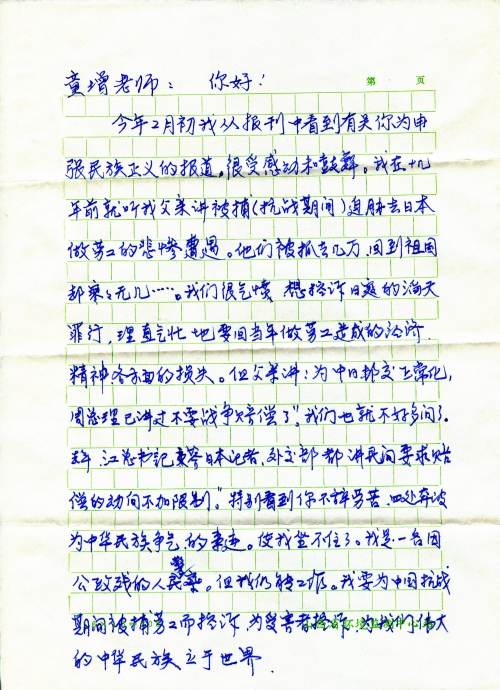 童增老师： 你好！
第 页
今年2月初我从报刊中看到有关你为申
张民族正义的报道。很受感动和鼓舞。我在十几
年前就听我父亲讲被捕(抗战期间)追胁去日本
做劳工的悲惨遭遇。他们被抓去几万，回到祖国
却剩之无几……。我们很气愤 想控诉日寇的滔天
罪行，理直气壮地要回当年做劳工造成的经济
精神各方面的损失。但父亲讲：为中日邦交正常化，
周总理已讲过不要战争赔偿了"。我们也就不好多问了。
去年，江总书记来答日本记者，外交部都讲民间要求赔
偿的动向不加限制。"特别看到你不辞劳苦，四处奔波
为中华民族争气的事迹。使我坐不住了。我是一名因
公致残的人民。但我仍能工作。我要为中国抗战
期间被捕劳工而控诉，为受害者控诉 为我们伟大
的中华民族立于世界.